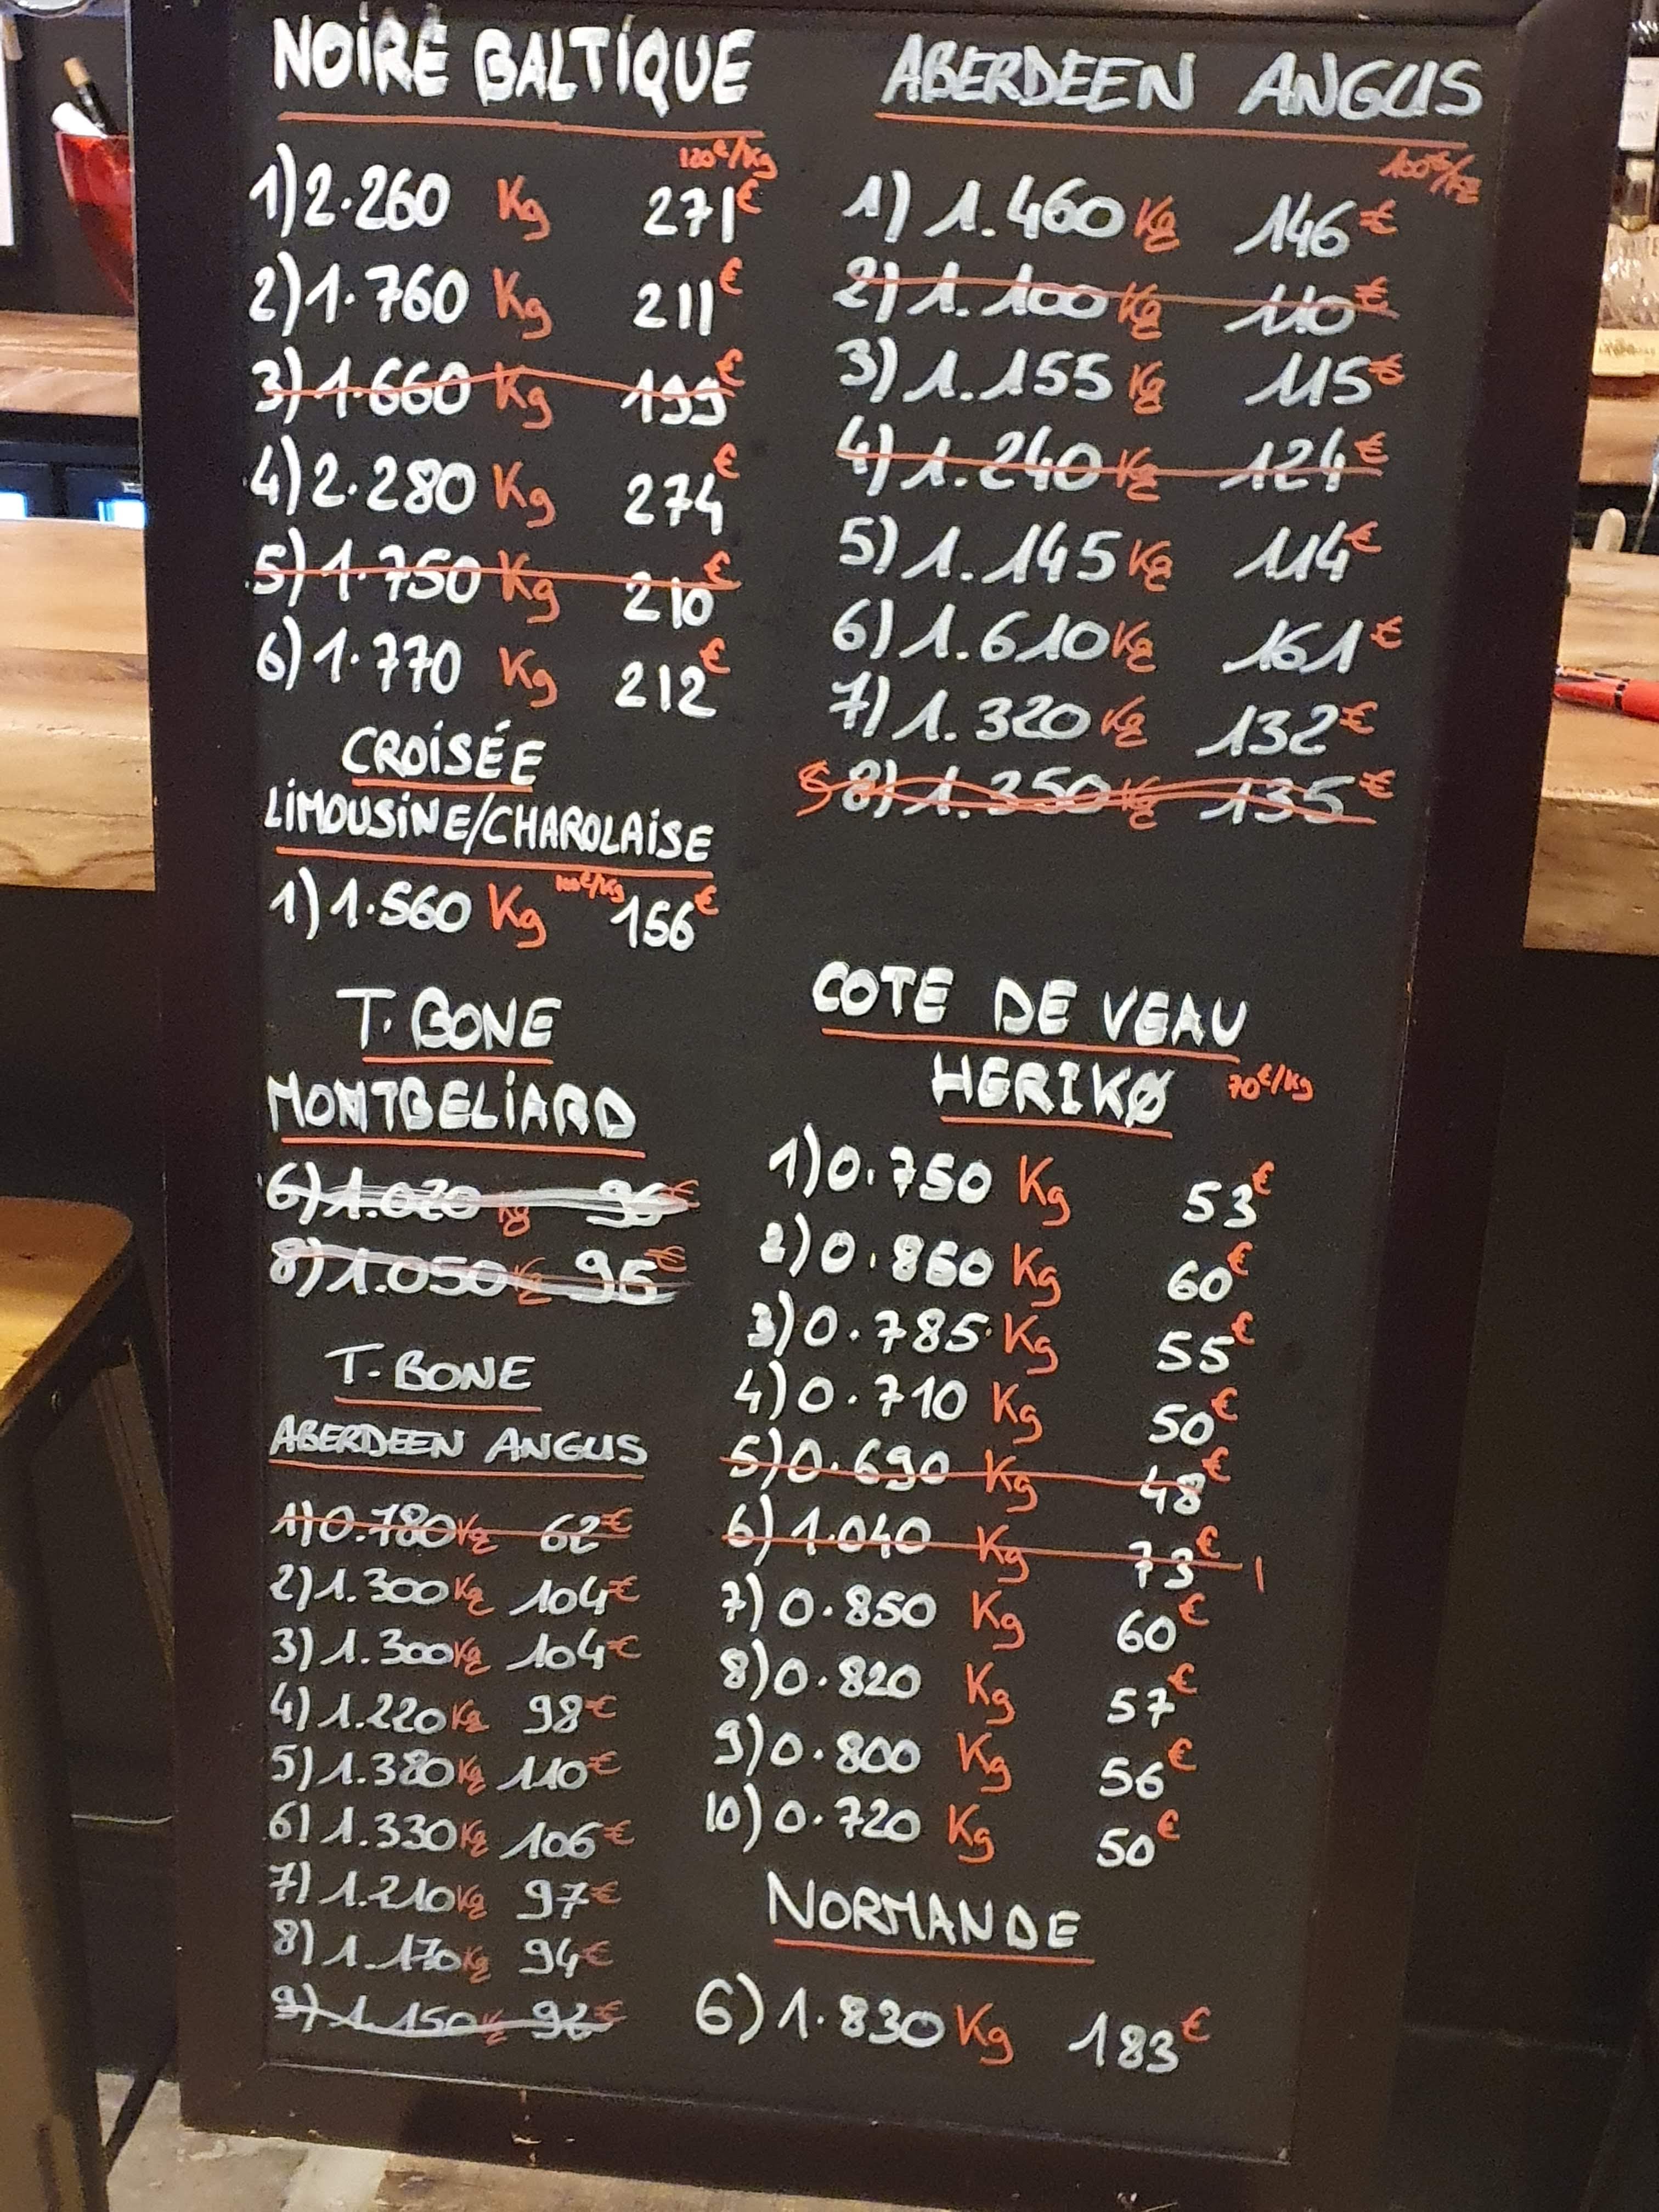 NOIRE BALTIQUE
120€/Kg
1) 2.260 Kg 271€
2) 1.760 Kg 211€
3) 1.660 Kg 199€
4) 2.280 Kg 274€
5) 1.750 Kg 210€
6) 1.770 Kg 212€
CROISÉE
LIMOUSINE/CHAROLAISE
100€/Kg
1) 1.560 Kg 156€
T.BONE
MONTBELIARD
6) 1.020 Kg 96€
8) 1.050 Kg 96€
T.BONE
ABERDEEN ANGUS
1) 0.780 Kg 62€
2) 1.300 Kg 104€
3) 1.300 Kg 104€
4) 1.220 Kg 98€
5) 1.380 Kg 110€
6) 1.330 Kg 106€
7) 1.210 Kg 97€
8) 1.170 Kg 94€
9) 1.150 Kg 92€
ABERDEEN ANGUS
100€/Kg
1) 1.460 Kg 146€
2) 1.100 Kg 110€
3) 1.155 Kg 115€
4) 1.240 Kg 124€
5) 1.145 Kg 114€
6) 1.610 Kg 161€
7) 1.320 Kg 132€
8) 1.350 Kg 135€
COTE DE VEAU
HERIKØ
70€/Kg
1) 0.750 Kg 53€
2) 0.860 Kg 60€
3) 0.785 Kg 55€
4) 0.710 Kg 50€
5) 0.690 Kg 48€
6) 1.040 Kg 73€
7) 0.850 Kg 60€
8) 0.820 Kg 57€
9) 0.800 Kg 56€
10) 0.720 Kg 50€
NORMANDE
6) 1.830 Kg 183€